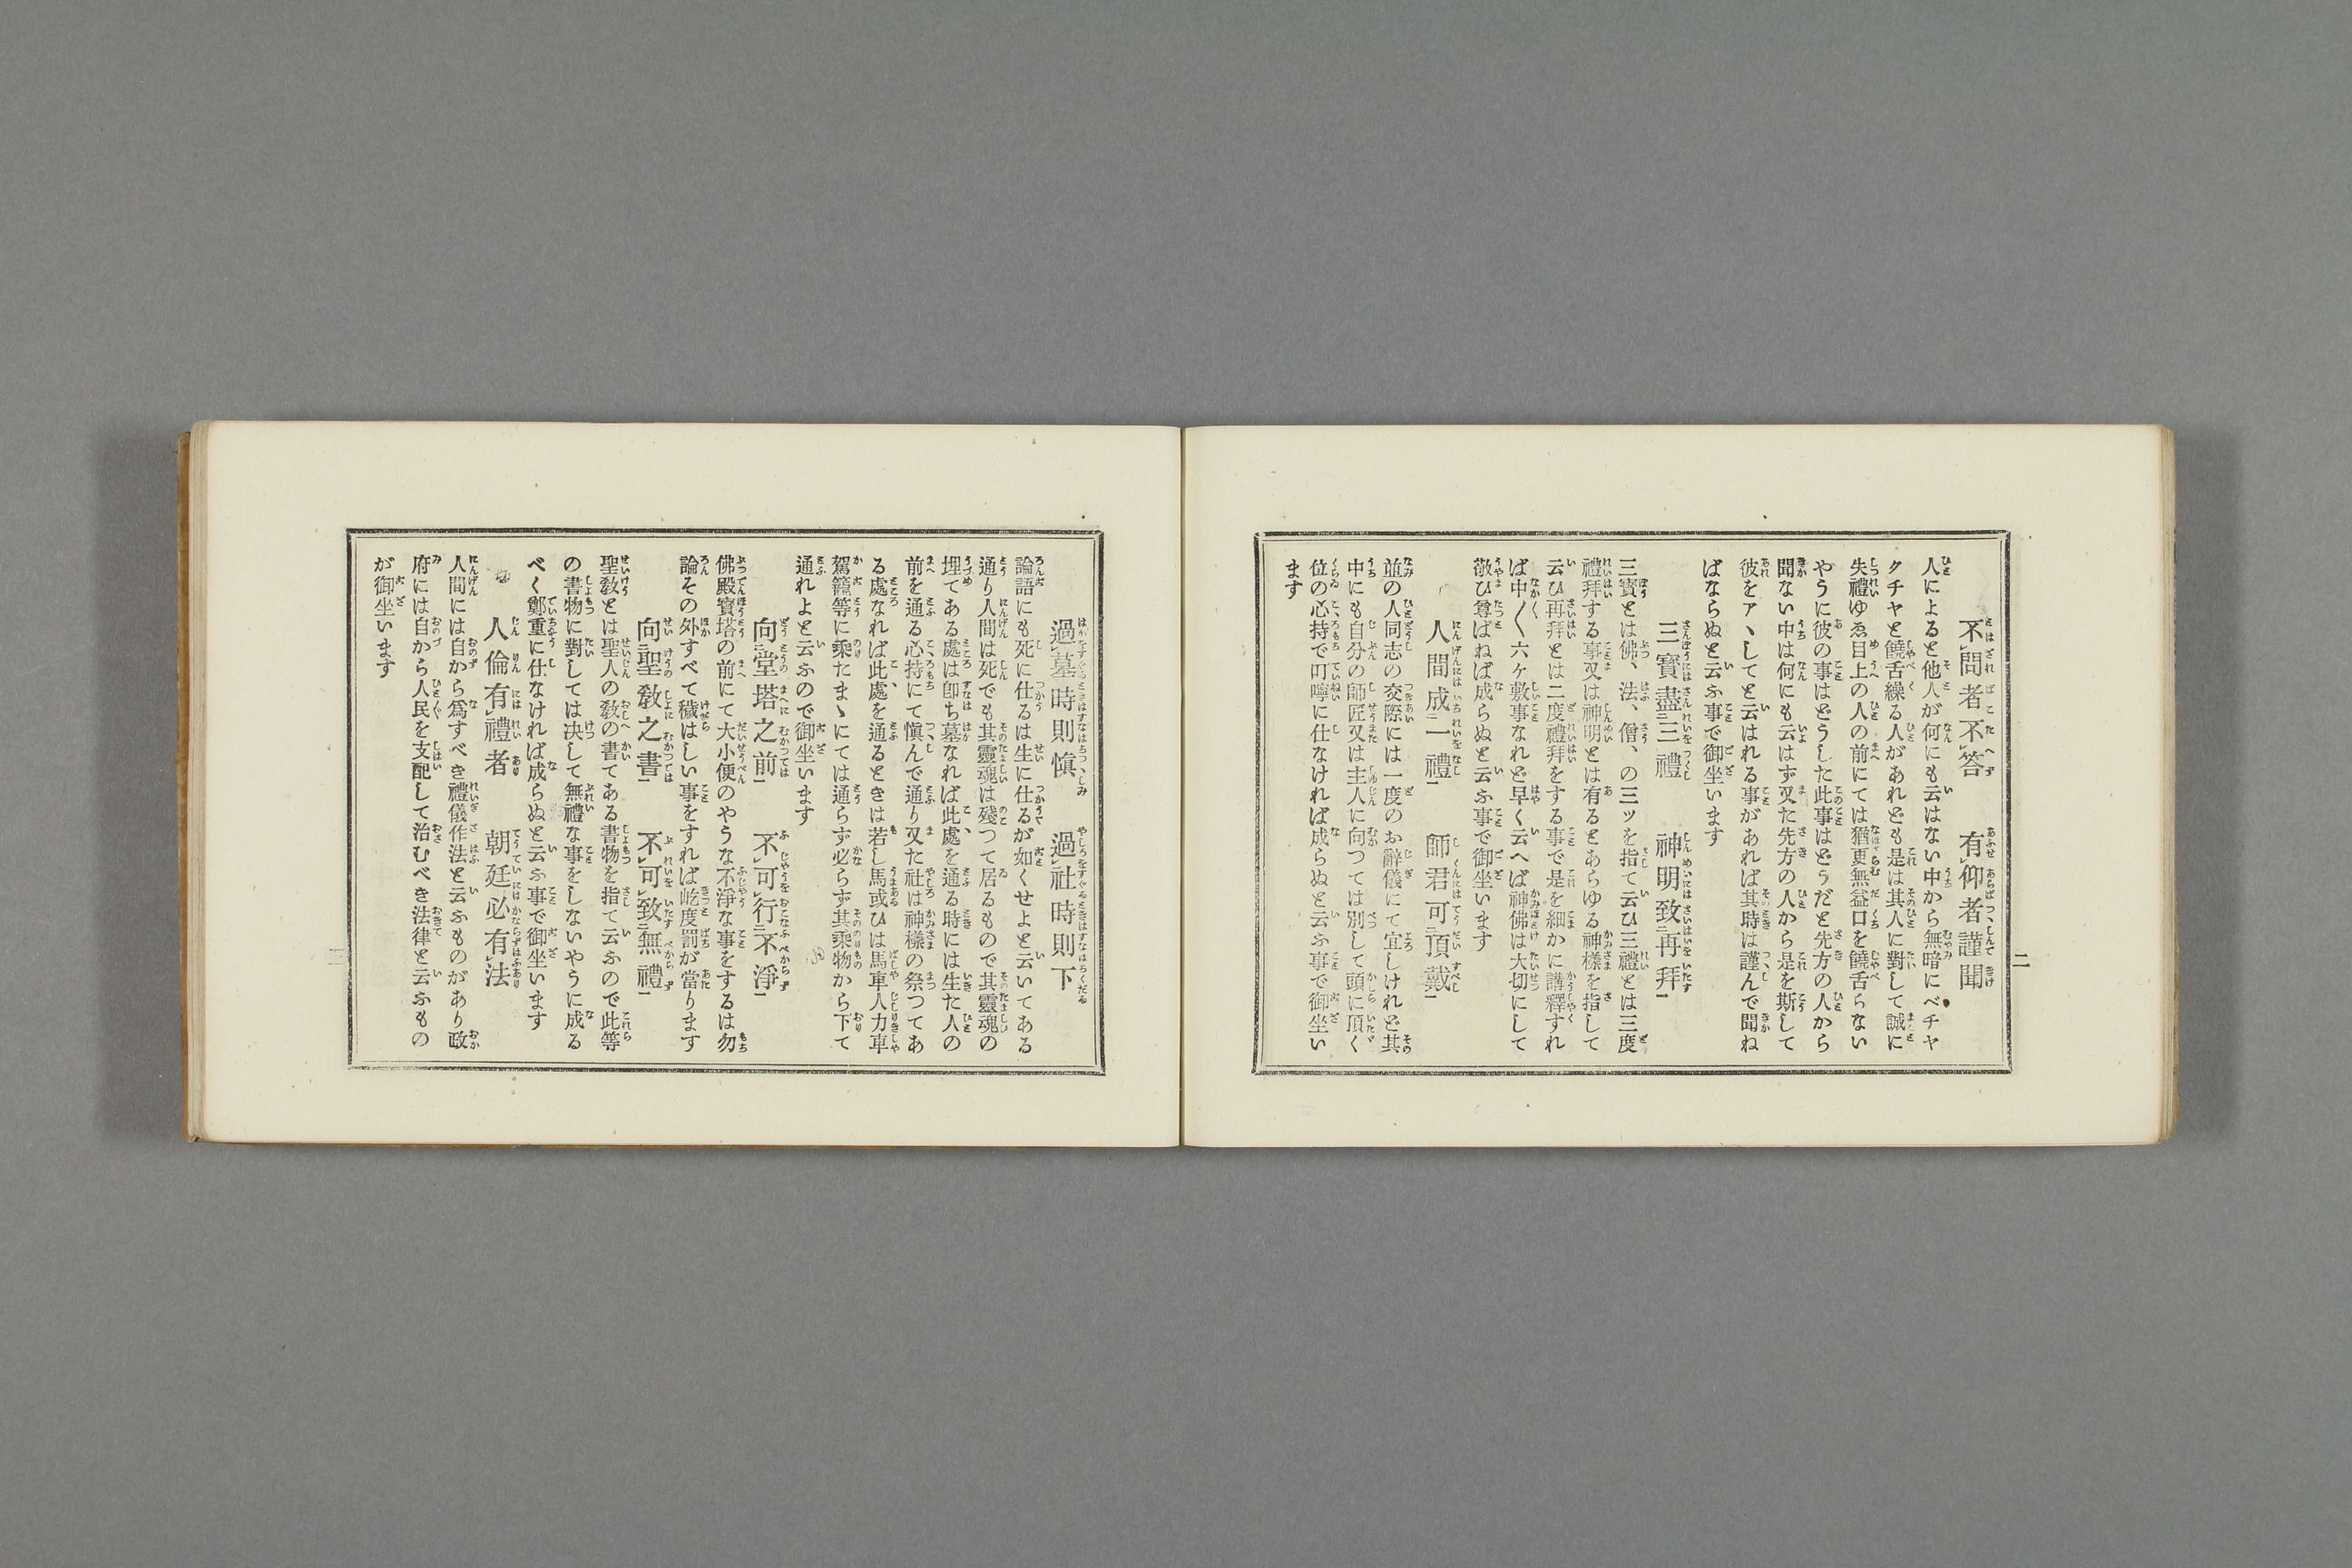 二
不レ問者不レ答　有レ仰者謹聞
人によると他人が何にも云はない中から無暗にベチヤ
クチヤと饒舌繰る人があれども是は其人に對して誠に
失禮ゆゑ目上の人の前にては猶更無益口を饒舌らない
やうに彼の事はどうした此事はどうだと先方の人から
聞ない中は何にも云はず又た先方の人から是を斯して
彼をアヽしてと云はれる事があれば其時は謹んで聞ね
ばならぬと云ふ事で御坐います
三寶盡二三禮一　神明致二再拜一
三寶とは佛、法、僧、の三ッを指て云ひ三禮とは三度
禮拜する事又は神明とは有るとあらゆる神樣を指して
云ひ再拜とは二度禮拜をする事で是を細かに講釋すれ
ば中〱六ヶ敷事なれど早く云へば神佛は大切にして
敬ひ尊ばねば成らぬと云ふ事で御坐います
人間成二一禮一　師君可二頂戴一
並の人同志の交際には一度のお辭儀にて宜しけれど其
中にも自分の師匠又は主人に向つては別して頭に頂く
位の心持で叮嚀に仕なければ成らぬと云ふ事で御坐い
ます
過レ墓時則愼　過レ社時則下
論語にも死に仕るは生に仕るが如くせよと云いてある
通り人間は死でも其靈魂は殘つて居るもので其靈魂の
埋てある處は卽ち墓なれば此處を通る時には生た人の
前を通る心持にて愼んで通り又た社は神樣の祭つてあ
る處なれば此處を通るときは若し馬或ひは馬車人力車
駕籠等に乘たまゝにては通らず必らず其乘物から下て
通れよと云ふので御坐います
向二堂塔之前一　不レ可レ行二不淨一
佛殿寶塔の前にて大小便のやうな不淨な事をするは勿
論その外すべて穢はしい事をすれば屹度罰が當ります
向二聖敎之書一　不レ可レ致二無禮一
聖敎とは聖人の敎の書てある書物を指て云ふので此等
の書物に對しては决して無禮な事をしないやうに成る
べく鄭重に仕なければ成らぬと云ふ事で御坐います
人倫有レ禮者　朝廷必有レ法
人間には自から爲すべき禮儀作法と云ふものがあり政
府には自から人民を支配して治むべき法律と云ふもの
が御坐います
三